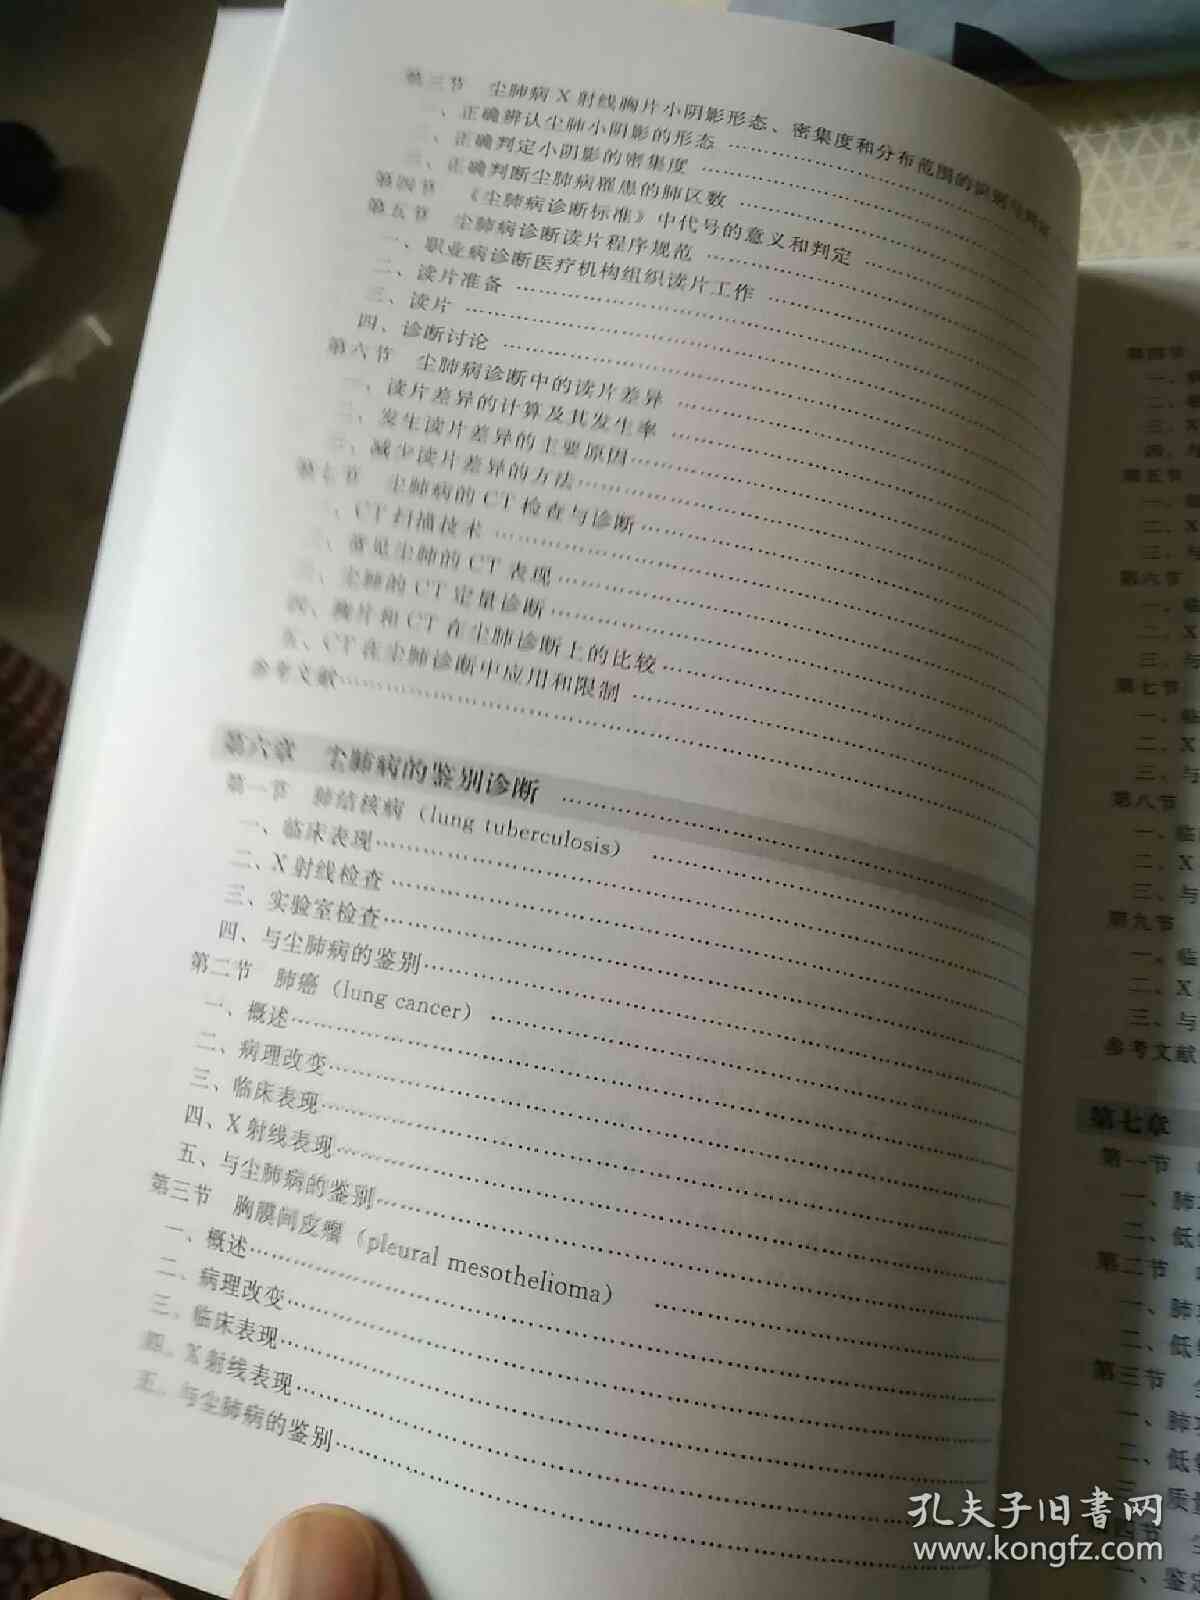 第三节 尘肺病 X 射线胸片小阴影形态、密集度和分布范围的识别与判定
一、正确辨认尘肺小阴影的形态
二、正确判定小阴影的密集度
三、正确判断尘肺病罹患的肺区数
第四节 《尘肺病诊断标准》中代号的意义和判定
第五节 尘肺病诊断读片程序规范
一、职业病诊断医疗机构组织读片工作
二、读片准备
三、读片
四、诊断讨论
第六节 尘肺病诊断中的读片差异
一、读片差异的计算及其发生率
二、发生读片差异的主要原因
三、减少读片差异的方法
第七节 尘肺病的 CT 检查与诊断
一、CT 扫描技术
二、常见尘肺的 CT 表现
三、尘肺的 CT 定量诊断
四、胸片和 CT 在尘肺诊断上的比较
五、CT 在尘肺诊断中应用和限制
参考文献
第六章 尘肺病的鉴别诊断
第一节 肺结核病（lung tuberculosis）
一、临床表现
二、X 射线检查
三、实验室检查
四、与尘肺病的鉴别
第二节 肺癌（lung cancer）
一、概述
二、病理改变
三、临床表现
四、X 射线表现
五、与尘肺病的鉴别
第三节 胸膜间皮瘤（pleural mesothelioma）
一、概述
二、病理改变
三、临床表现
四、X 射线表现
五、与尘肺病的鉴别
第四节
一、
二、
三、
四、与
第五节
一、
二、X
三、与
第六节
一、临
二、X
三、与
第七节
一、临
二、X
三、与
第八节
一、临
二、X
三、与
第九节
一、临
二、X
三、与
参考文献
第七章
第一节
一、肺
二、低
第二节
一、肺
二、低
第三节
一、肺
二、低
三、质量
第四节
一、鉴定
孔夫子旧书网
www.kongfz.com